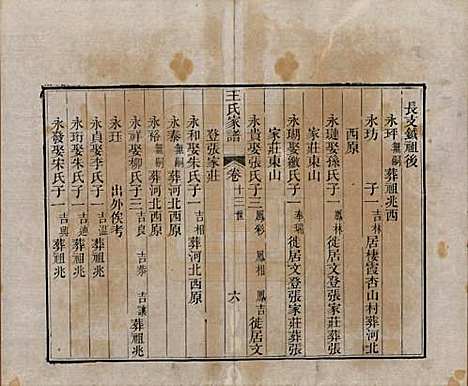 長支鉞祖後
永坪 無嗣 葬祖兆西
永坊 子一 吉林 居棲霞杏山村葬河北
西原
永璉娶孫氏子一 徙居文登張家莊葬張
家莊東山
永瑚娶繳氏子一 奉瑞 徙居文登張家莊葬張
家莊東山
永貴娶張氏子三 鳳彩 鳳相 鳳吉 徙居文
登張家莊
王氏家譜 卷 十三世 六
永和娶朱氏子一 吉相 葬河北西原
永泰 無嗣 葬河北西原
永裕 無嗣 葬河北西原
永祥娶柳氏子三 吉良 吉泰 吉讓 葬祖兆
永珏 出外俟考
永貞娶李氏子一 吉溫 葬祖兆
永珩娶朱氏子一 吉通 葬祖兆
永發娶宋氏子一 吉興 葬祖兆